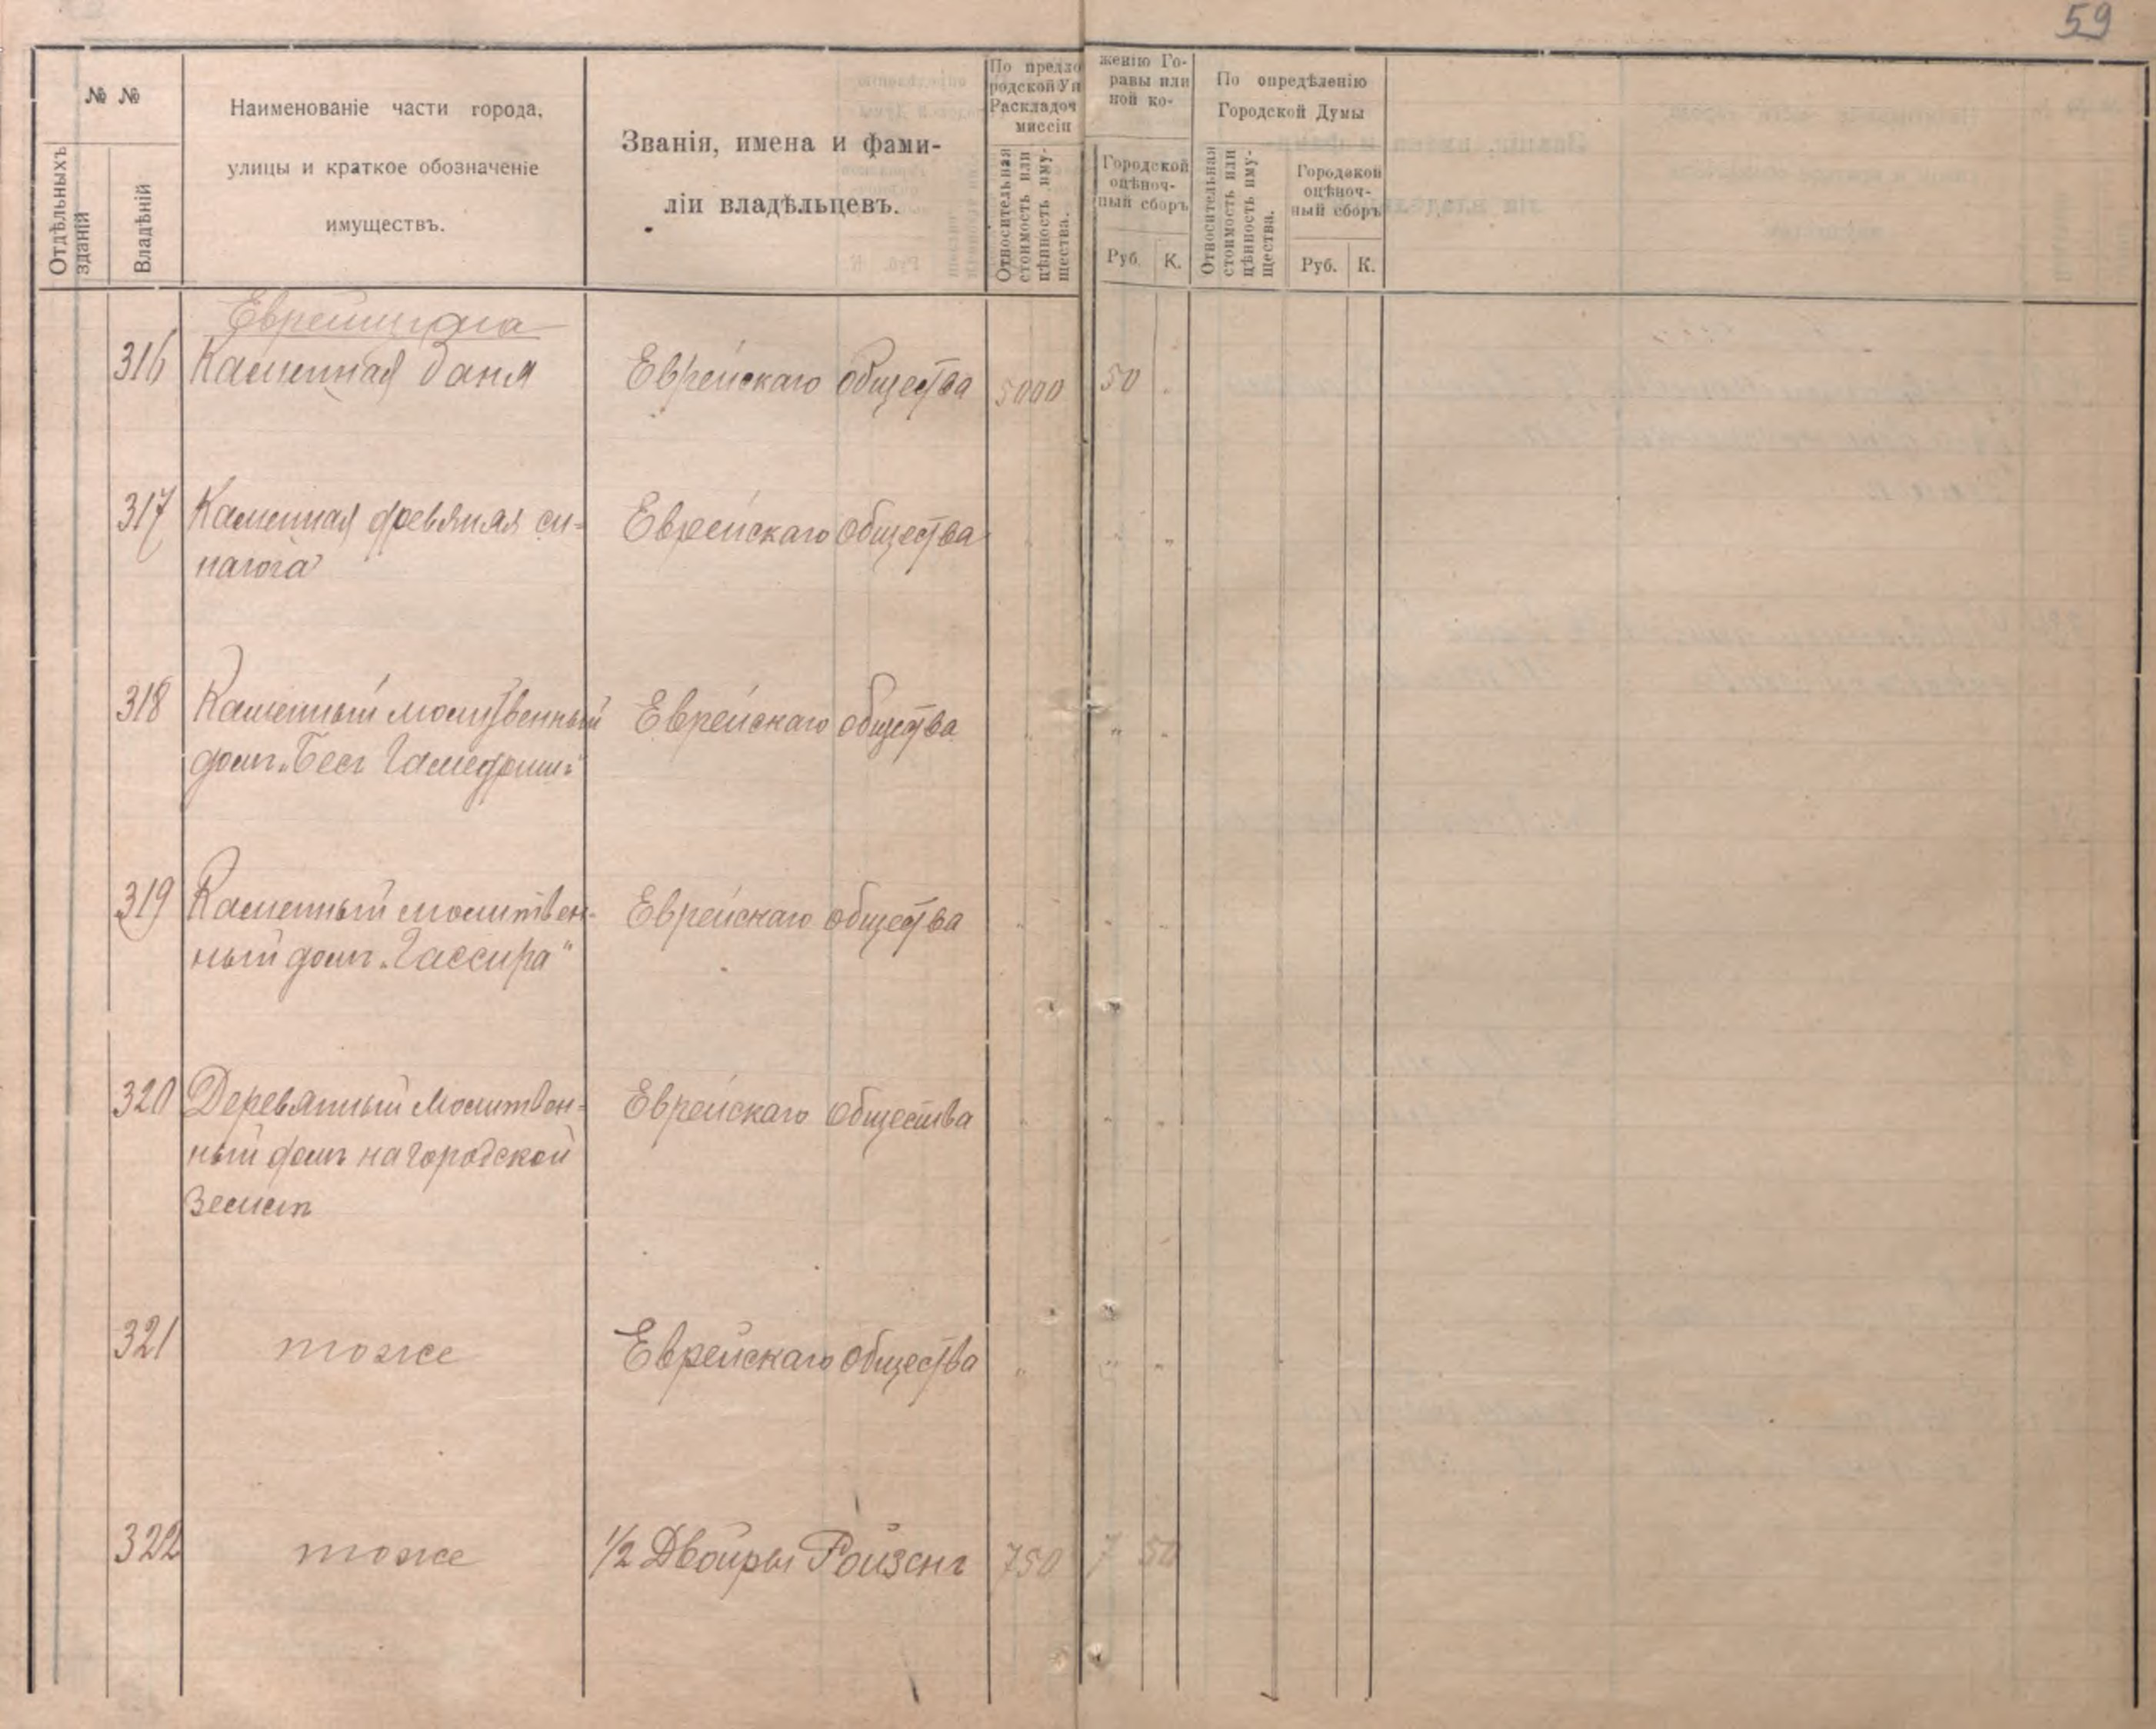 59
№ №
Отдѣльныхъ зданій
Владѣній
Наименованіе части города,
улицы и краткое обозначеніе
имуществъ.
Званія, имена и фами-
ліи владѣльцевъ.
По предло
женію Го-
родской Уп
равы или
Раскладоч
ной ко-
миссіи
Относительная стоимость или цѣнность иму-щества.
Городской
оцѣноч-
ный сборъ
Руб. К.
По опредѣленію
Городской Думы
Относительная стоимость или цѣнность иму-щества.
Городской
оцѣноч-
ный сборъ
Руб. К.
316 Каменная баня Еврейскаго общества 5000 50
317 Каменная древяная си-
нагога Еврейскаго общества
318 Каменный молитвенный Еврейскаго общества
домъ „Бесъ Гамедришъ"
319 Каменный молитвен- Еврейскаго общества
ный домъ „Гассира"
320 Деревянный Молитвен- Еврейскаго общества
ный домъ на городской
земле
321 тоже Еврейскаго общества
322 тоже 1/2 Двойры Ройзенъ 750 7 50